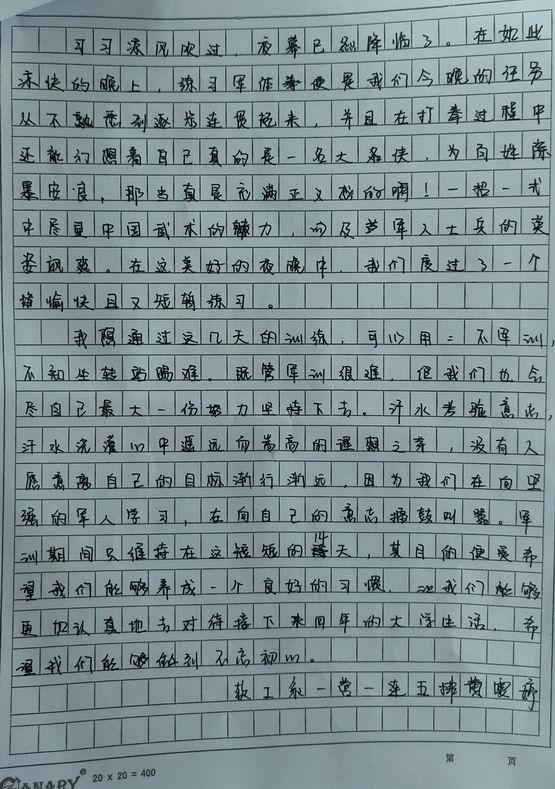 习习凉风吹过，夜幕已经降临了。在如此
凉快的晚上，练习军体拳便是我们今晚的任务
从不熟悉到逐步连贯起来，并且在打拳过程中
还能幻想着自己真的是一名大名侠，为百姓除
暴安良，那当真是充满正义感的啊！一招一式
中尽显中国武术的魅力，向及军人士兵的英
姿飒爽。在这美好的夜晚中，我们度过了一个
愉快且又短暂练习。
我通过这几天的训练，可以用：不军训，
不知坐转站蹲难。既管军训很难，但我们也会
尽自己最大一份努力坚持下去。汗水考验意志，
汗水浇灌心中遥远而崇高的理想之芽，没有人
愿意离自己的目标渐行渐远，因为我们在向坚
强的军人学习，在向自己的意志擂鼓叫嚣。军
训期间只维持在这短短的14天，其目的便是希
望我们能够养成一个良好的习惯，让我们能够
更加认真地去对待接下来四年的大学生活，希
望我们能够做到不忘初心。
软工系一营一连五排
第 页
CANARY® 20 x 20 = 400